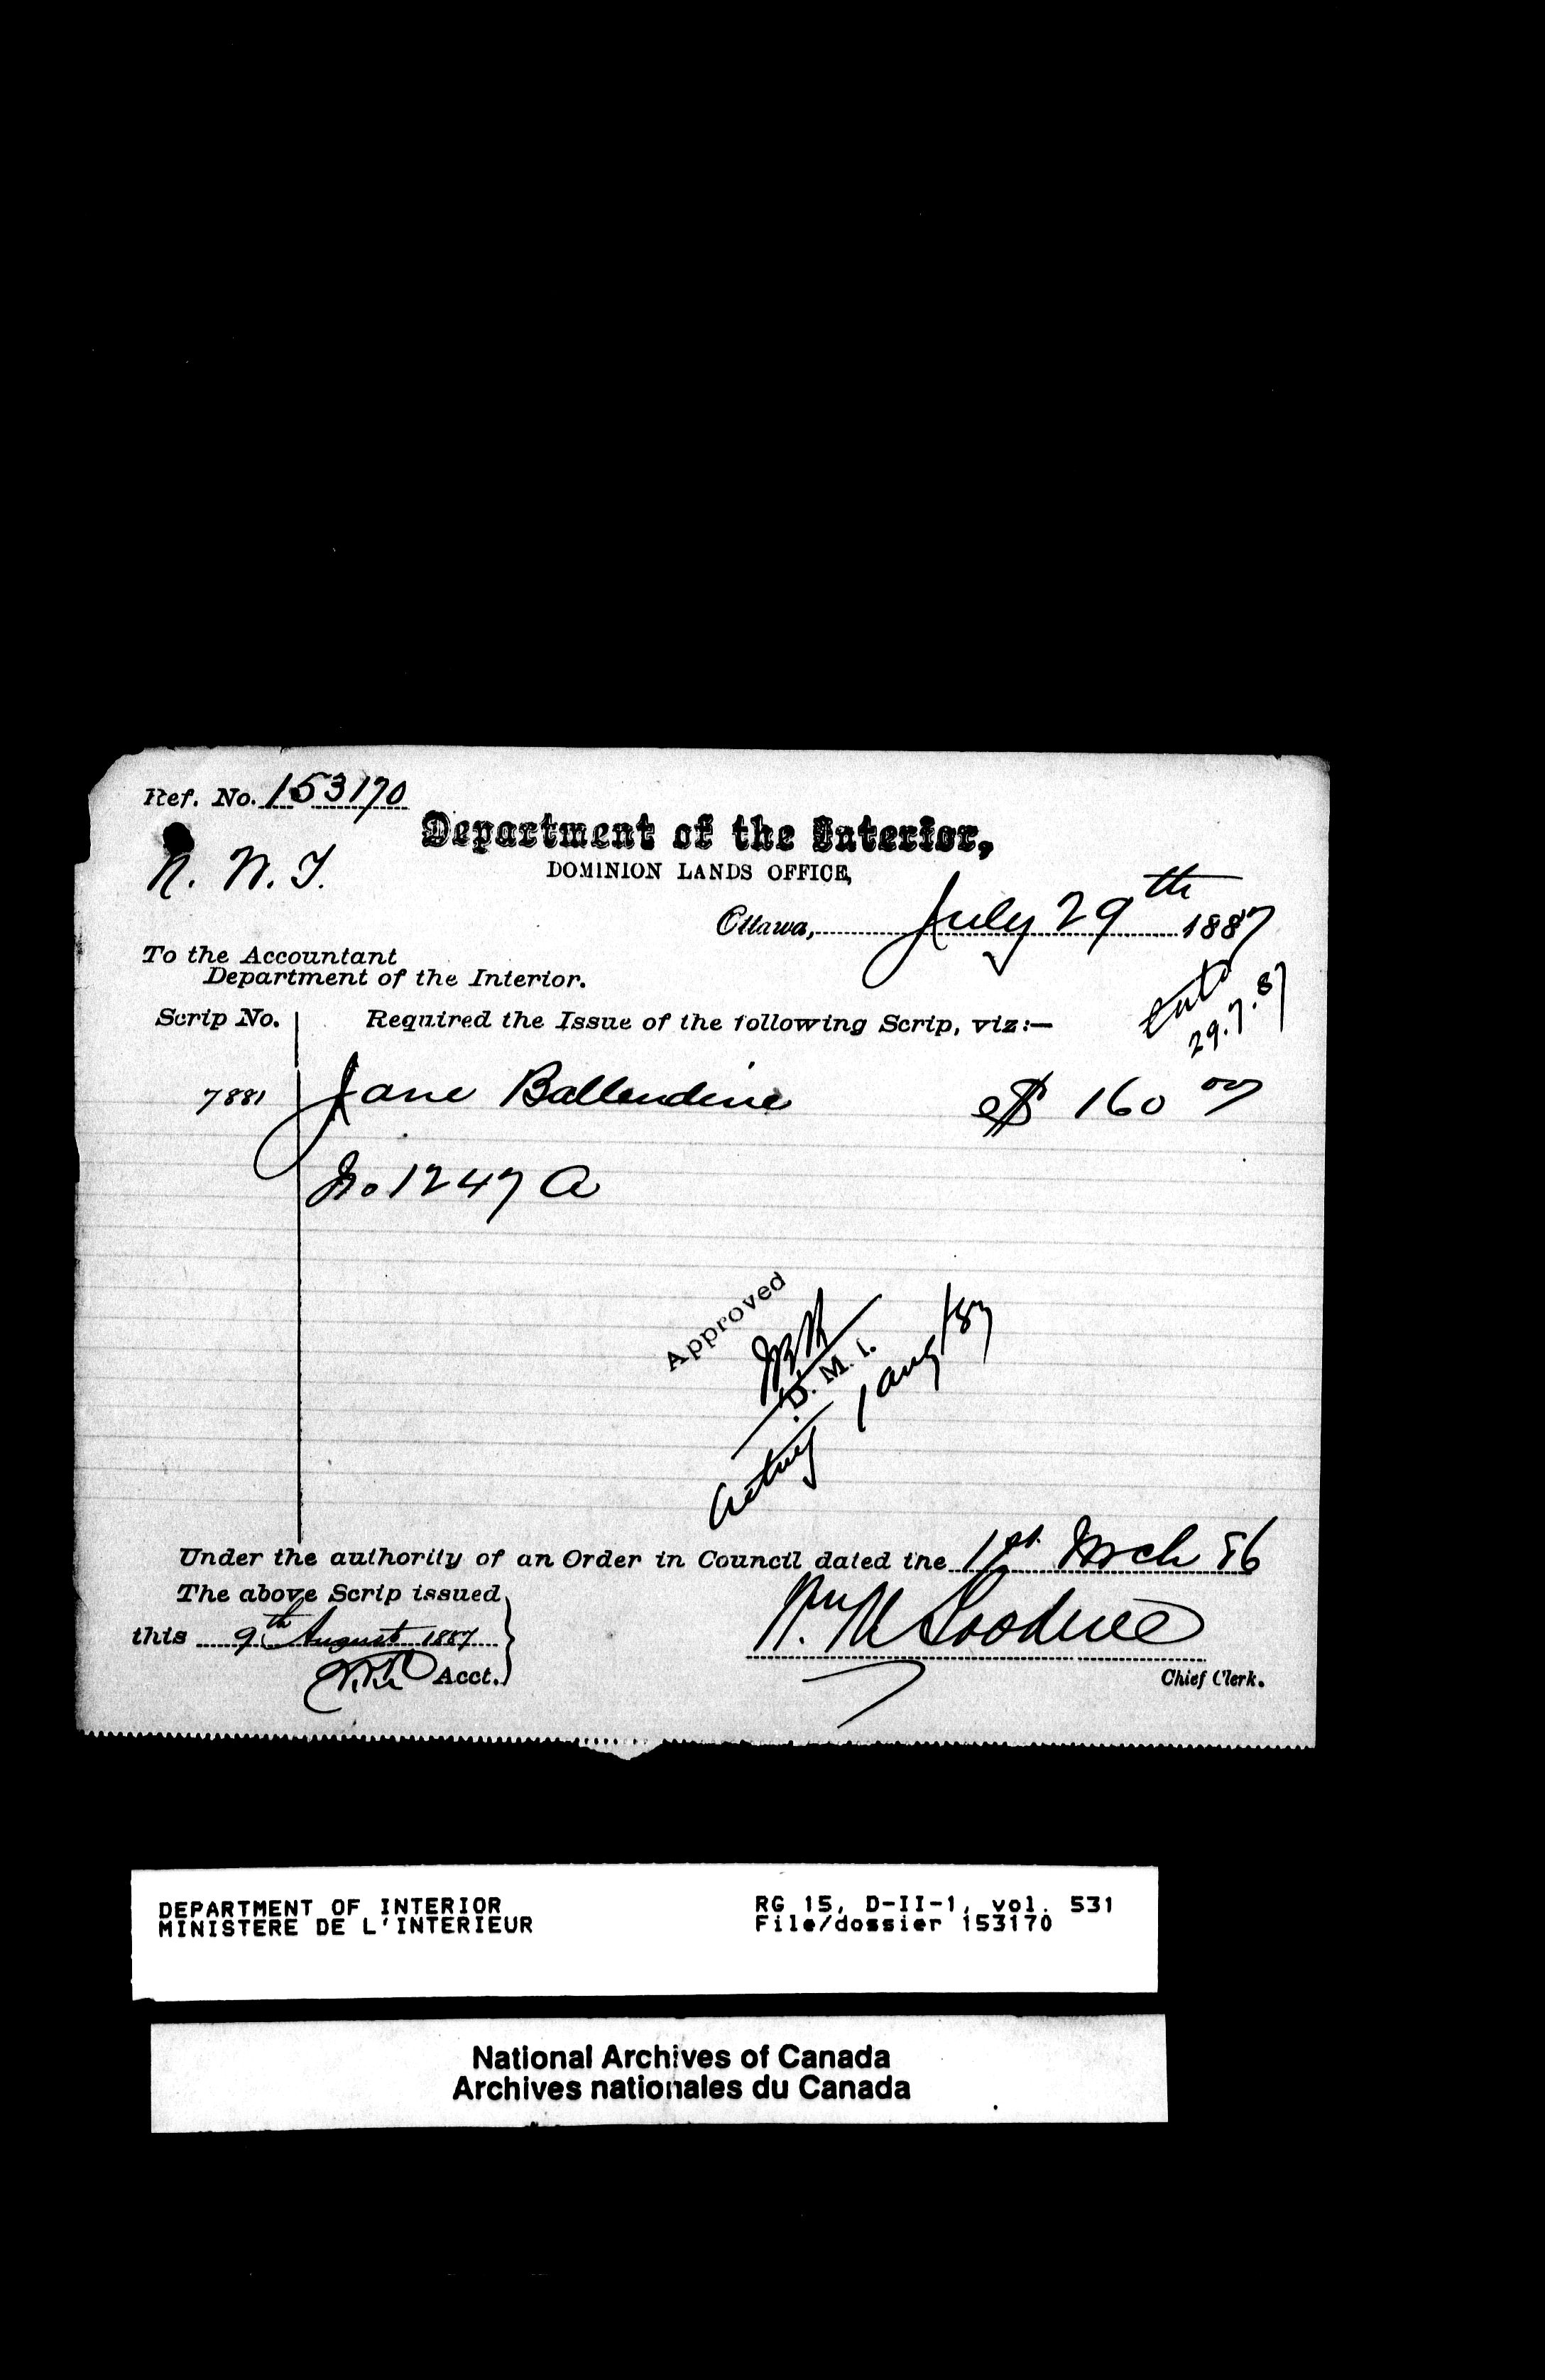 Ref. No. 153170
Department of the Interior,
N. W. T.
DOMINION LANDS OFFICE,
Ottawa, July 29th 1887
To the Accountant
Department of the Interior.
29.7.87
Scrip No. Required the Issue of the following Scrip, viz:—
7881 Jane Ballendine $ 160 00
No 1247 A
Approved
D. M. I.
Acting 1 Aug/87
Under the authority of an Order in Council dated the 1st. Mch 86
The above Scrip issued
this 9th August 1887
Acct.
Chief Clerk.
DEPARTMENT OF INTERIOR
MINISTERE DE L'INTERIEUR
RG 15, D-II-1, vol. 531
File/dossier 153170
National Archives of Canada
Archives nationales du Canada